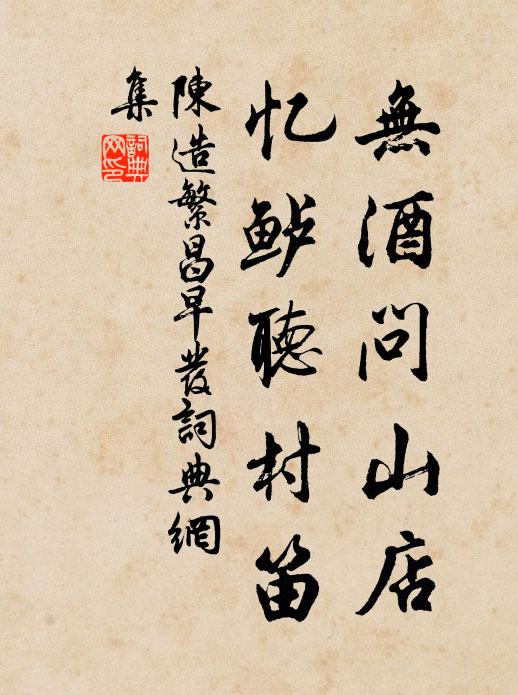 無酒問山店
忆鲈聽村笛
陳造繁昌早發詞典網
集
詞典
网印